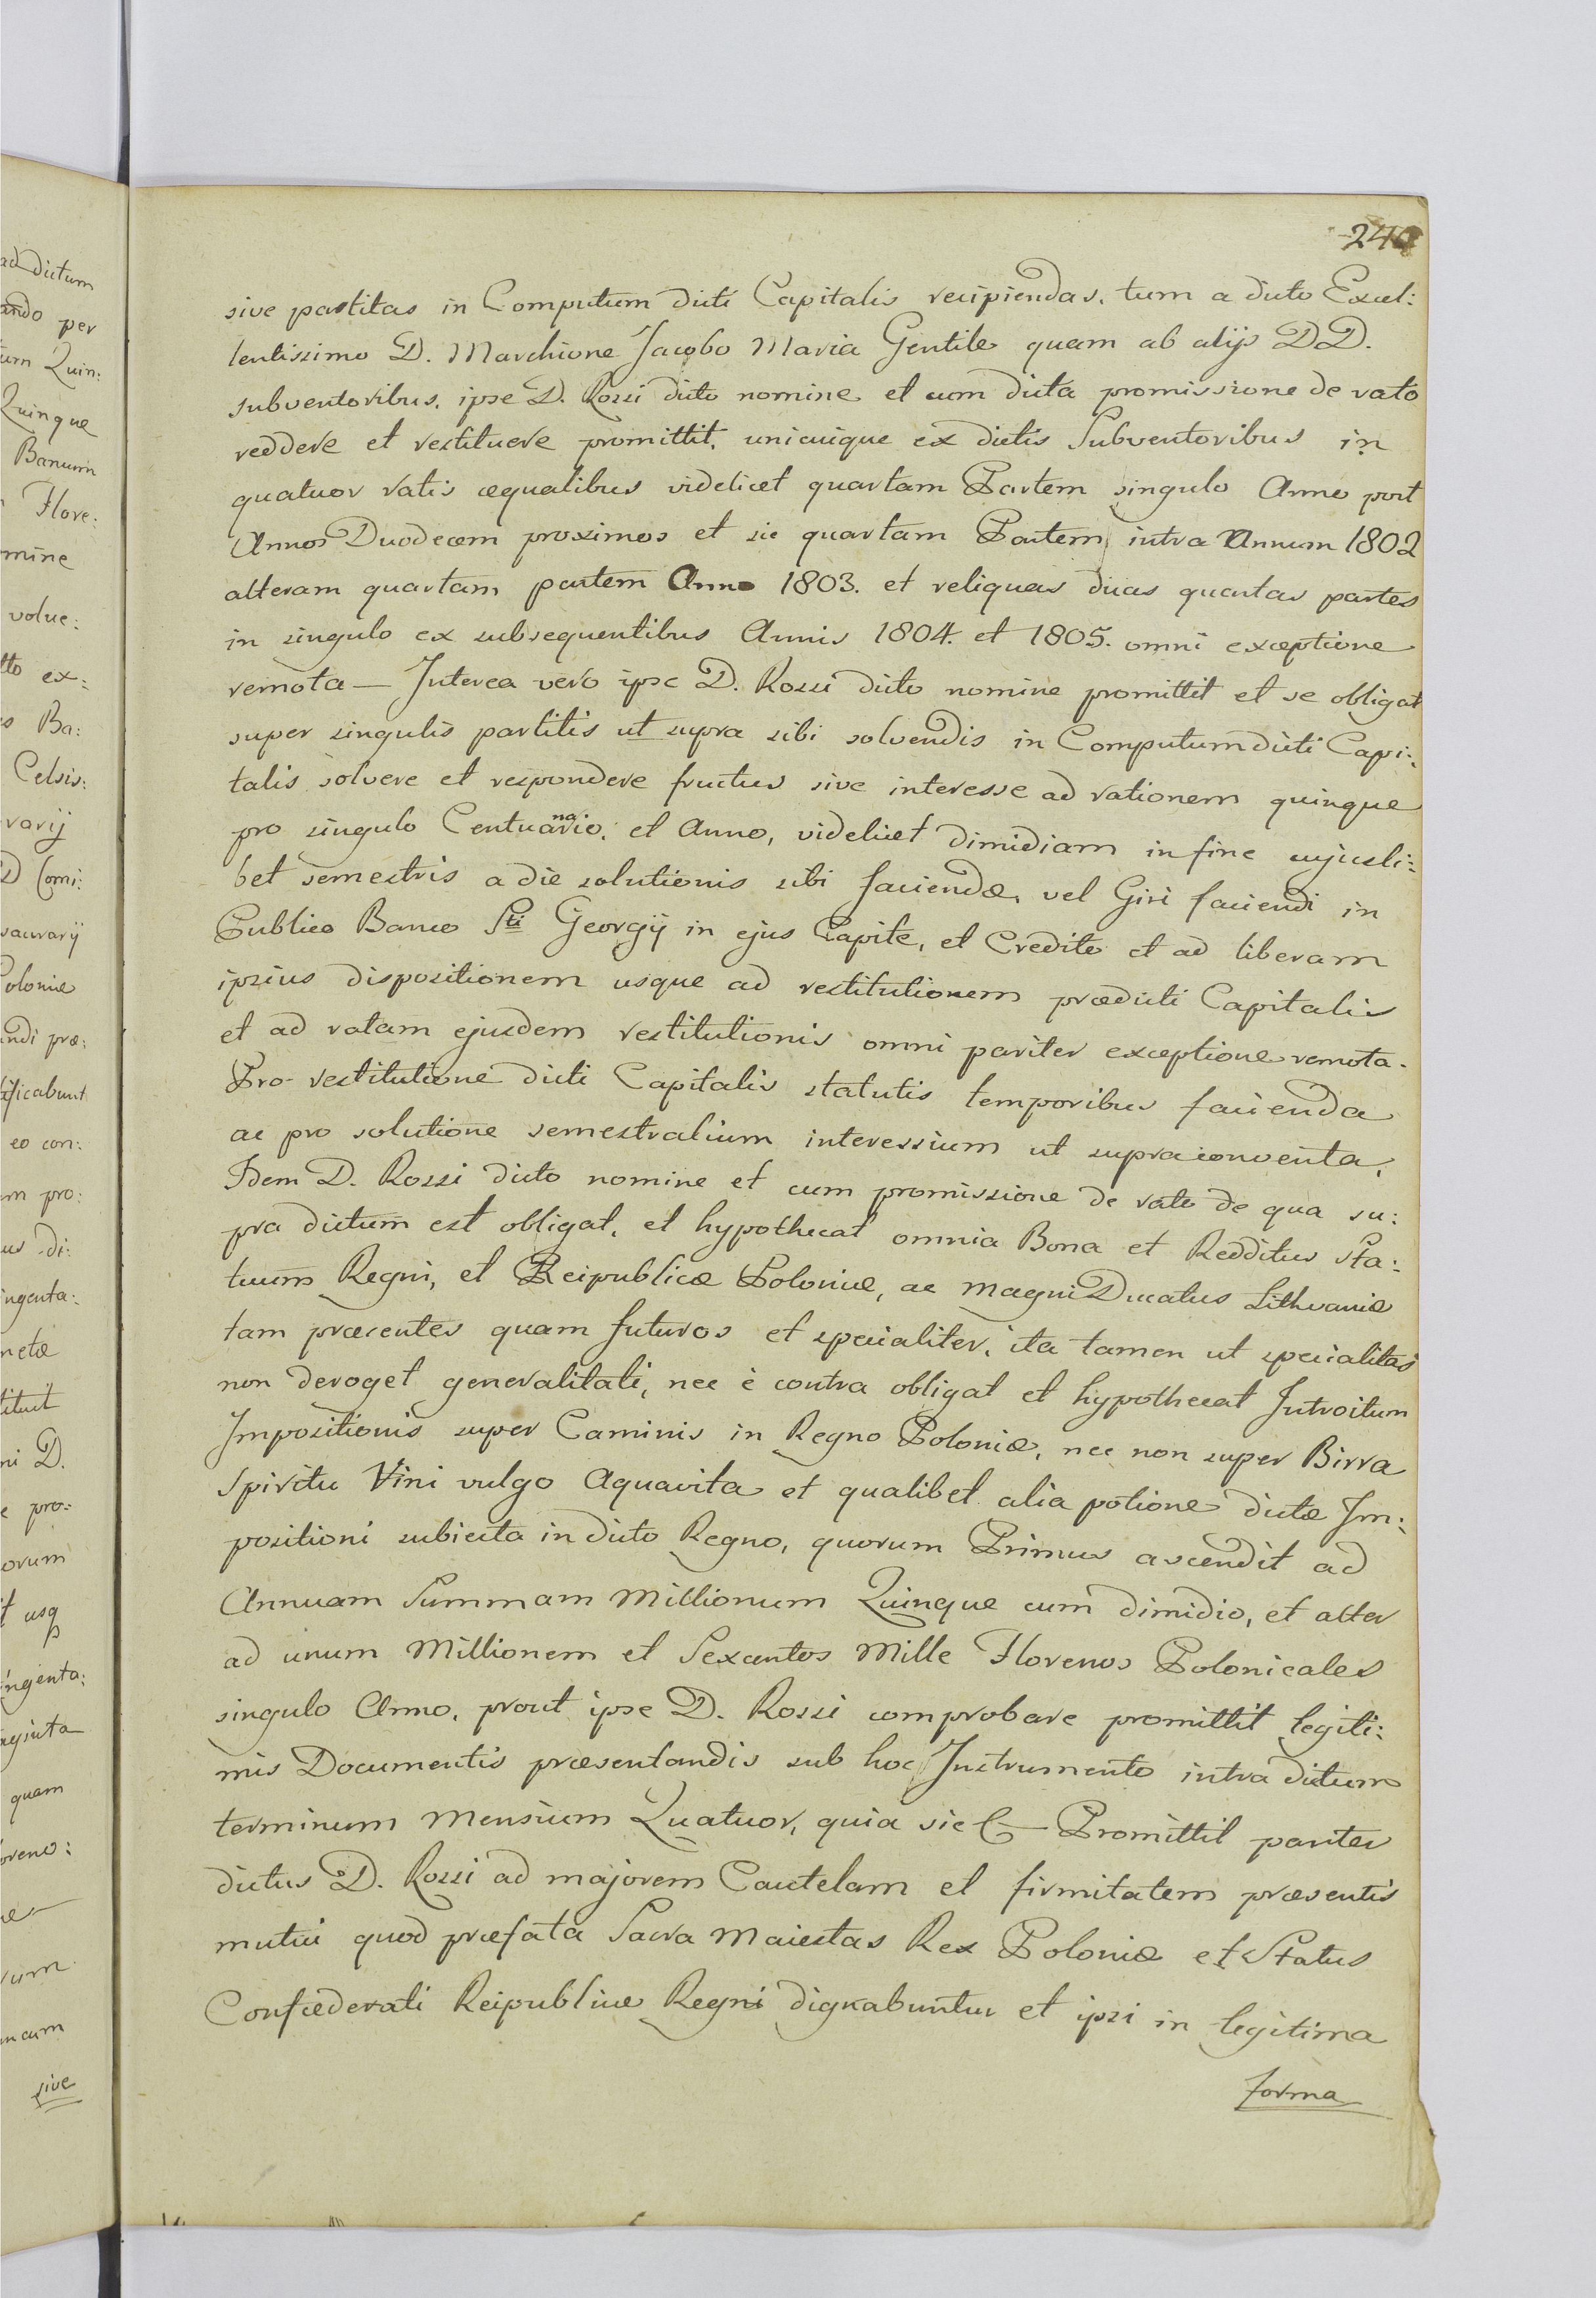 240
sive partitas in Computum dicti Capitalis recipiendas, tum a dicto Excel:
lentissimo D. Marchione Jacobo Maria Gentile quam ab alijs DD.
subventoribus, ipse D. Rossi dicto nomine et cum dicta promissione de rato
reddere et restituere promittit, unicuique ex dictis Subventoribus in
quatuor ratis æqualibus videlicet quartam Partem singulo Anno post
Annos Duodecem proximos et sic quartam Partem intra Annum 1802
alteram quartam partem Anno 1803. et reliquas duas quartas partes
in singulo ex subsequentibus Annis 1804. et 1805. omni exceptione
remota — Interea vero ipse D. Rossi dicto nomine promittit et se obligat
super singulis partitis ut supra sibi solvendis in Computum dicti Capi:
talis solvere et respondere fructus sive interesse ad rationem quinque
pro singulo Centuanario, et Anno, videlicet dimidiam in fine cujusli:
bet semestris a die solutionis sibi faciendæ, vel Giri faciendi in
Publico Banco Sti Georgij in ejus Capite, et Credito et ad liberam
ipsius dispositionem usque ad restitutionem prædicti Capitalis
et ad ratam ejusdem restitutionis omni pariter exceptione remota.
Pro restitutione dicti Capitalis statutis temporibus facienda
ac pro solutione semestralium interessium ut supra conventa,
Idem D. Rossi dicto nomine et cum promissione de rato de qua su:
pra dictum est obligat, et hypothecat omnia Bona et Redditus Sta:
tuum Regni, et Reipublicæ Poloniæ, ac Magni Ducatus Lithvaniæ
tam præsentes quam futuros et specialiter, ita tamen ut specialitas
non deroget generalitati, nec è contra obligat et hypothecat Introitum
Impositionis super Caminis in Regno Poloniæ, nec non super Birra
Spiritu Vini vulgo Aquavita et qualibet alia potione dictæ Im:
positioni subiecta in dicto Regno, quorum Primus ascendit ad
Annuam Summam Millionum Quinque cum dimidio, et alter
ad unum Millionem et Sexcentos Mille Florenos Polonicales
singulo Anno, prout ipse D. Rossi comprobare promittit legiti:
mis Documentis præsentandis sub hoc Instrumento intra dictum
terminum Mensium Quatuor, quia sic &— Promittit pariter
dictus D. Rossi ad majorem Cautelam et firmitatem præsentis
mutui quod præfata Sacra Maiestas Rex Poloniæ et Status
Confœderati Reipublicæ Regni dignabuntur et ipsi in legitima
forma